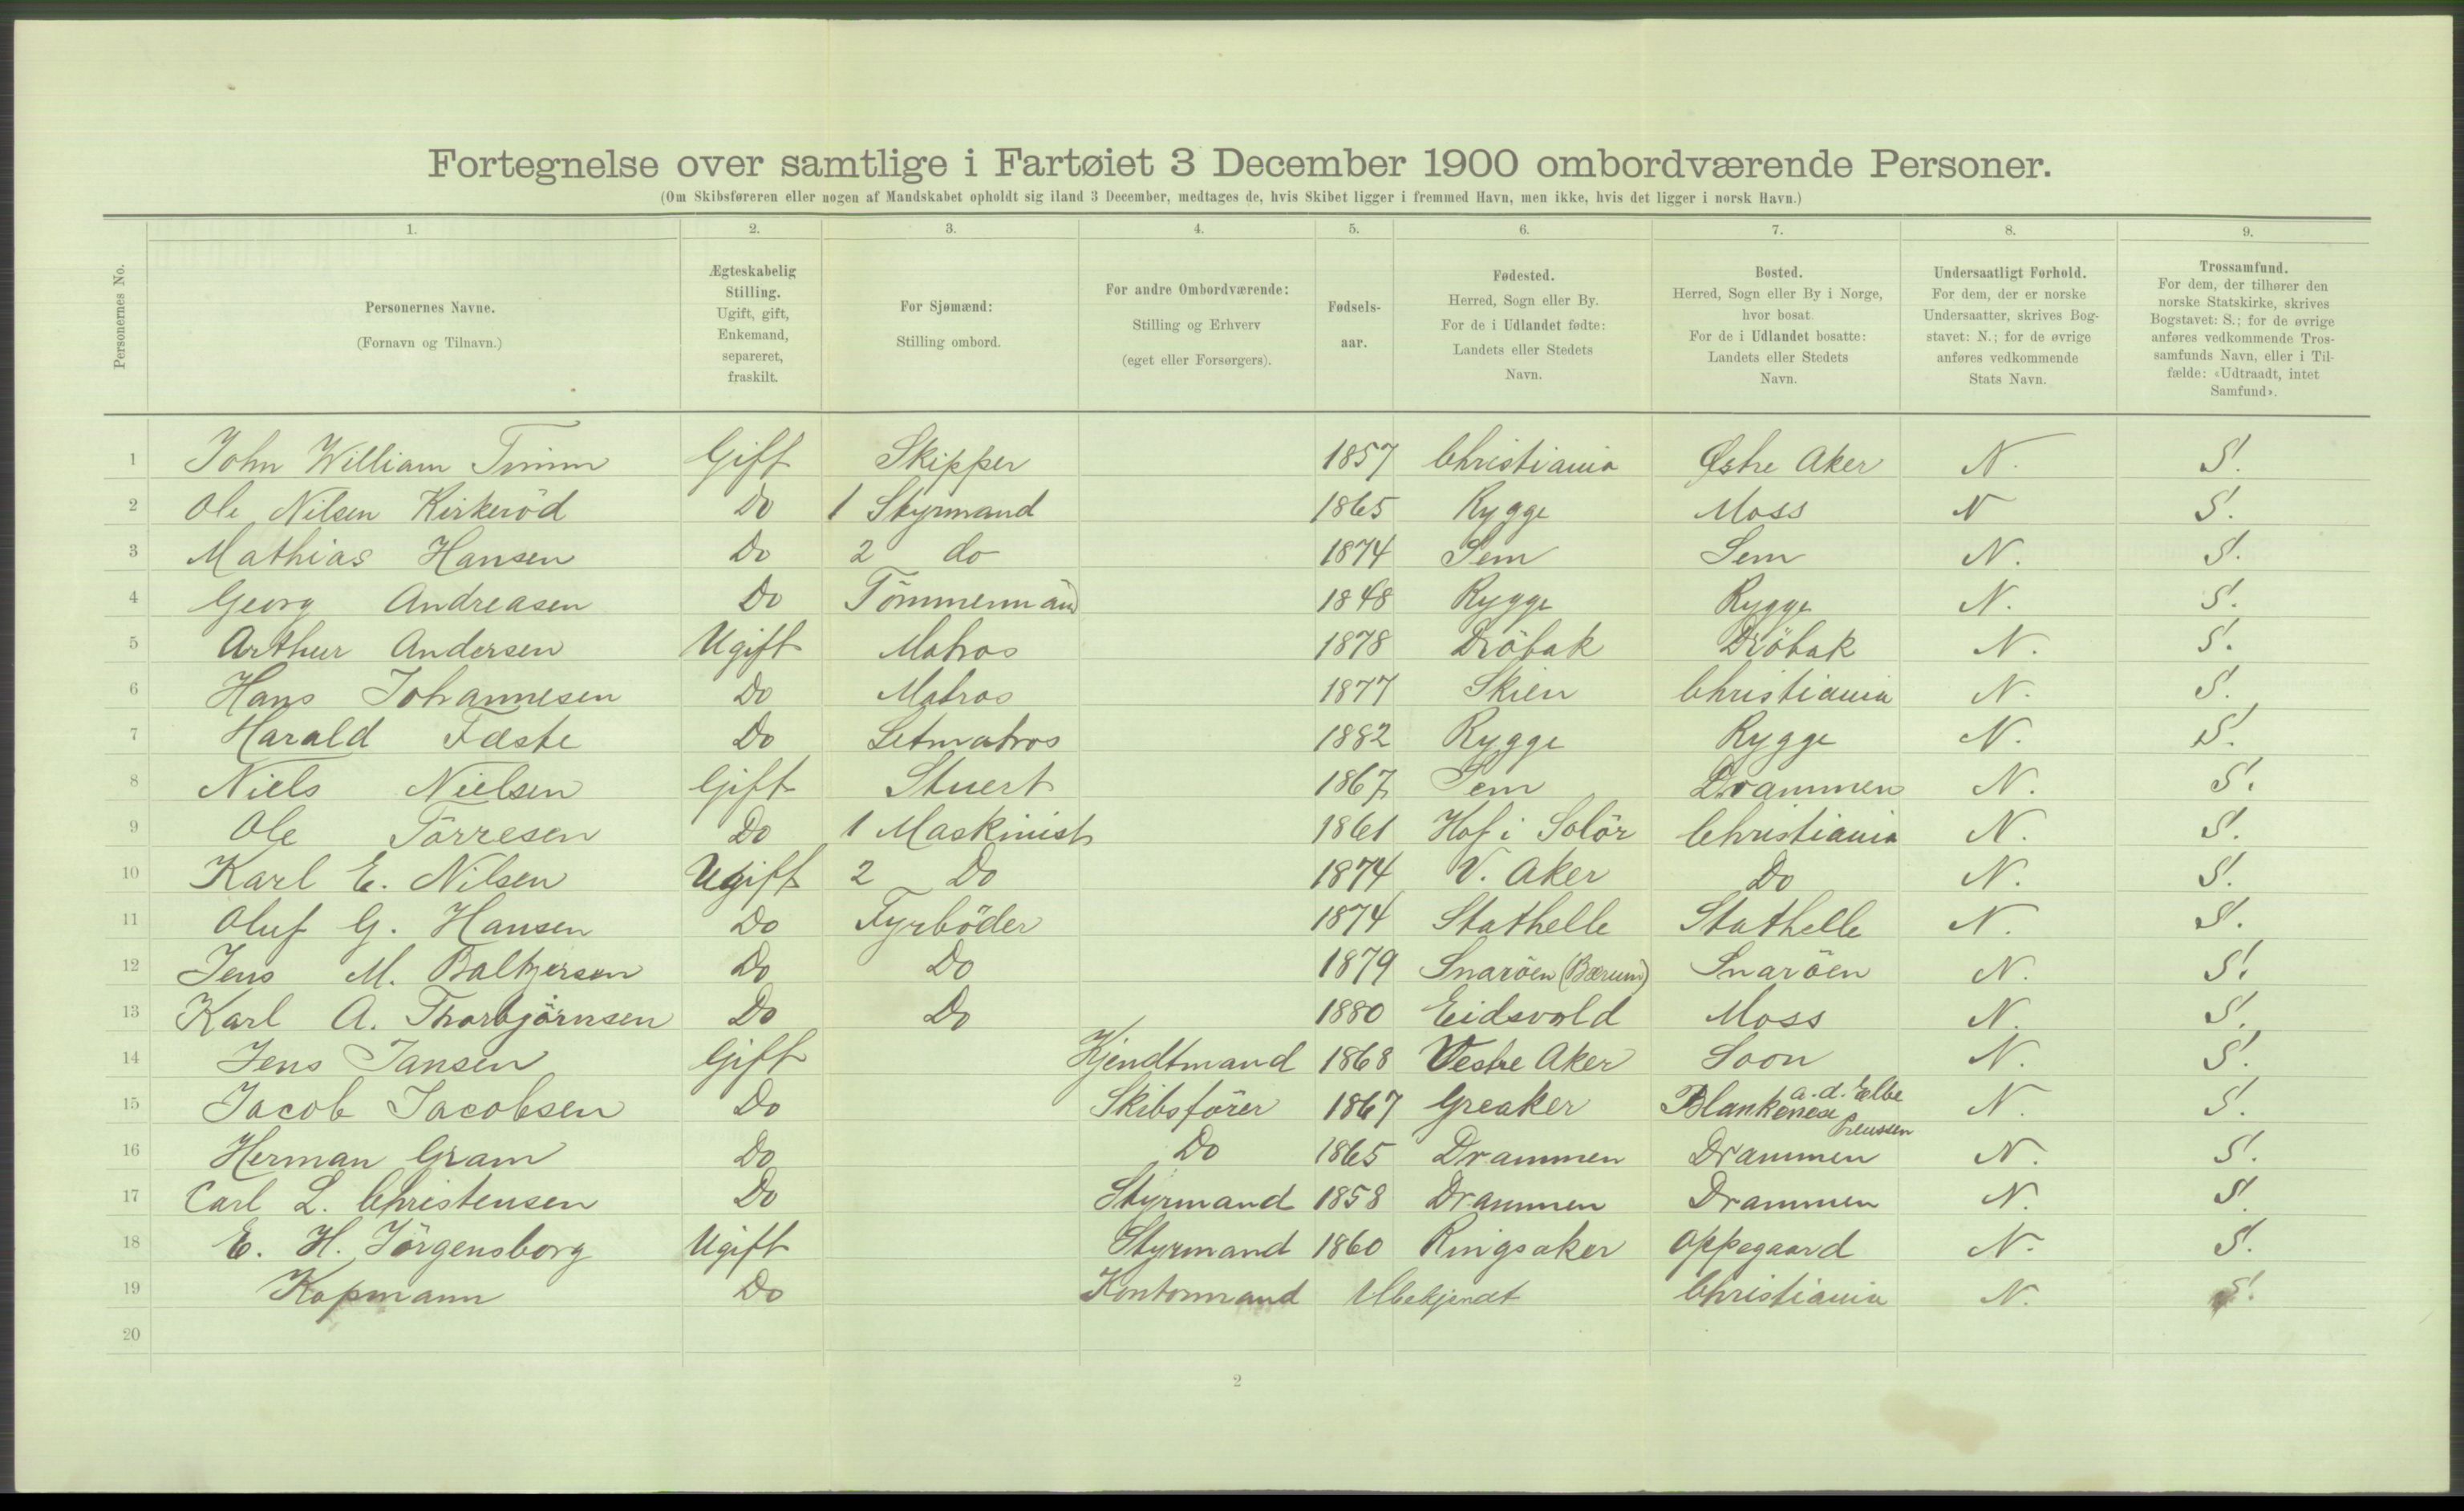 Fortegnelse over samtlige i Fartøiet 3 December 1900 ombordværende Personer.
(Om Skibsføreren eller nogen af Mandskabet opholdt sig iland 3 December, medtages de, hvis Skibet ligger i fremmed Havn, men ikke, hvis det ligger i norsk Havn.)
Personernes No.
1. 2. 3. 4. 5. 6. 7. 8. 9.
Personernes Navne.
(Fornavn og Tilnavn.)
Ægteskabelig
Stilling.
Ugift, gift,
Enkemand,
separeret,
fraskilt.
For Sjømænd:
Stilling ombord.
For andre Ombordværende:
Stilling og Erhverv
(eget eller Forsørgers).
Fødsels-
aar.
Fødested.
Herred, Sogn eller By.
For de i Udlandet fødte:
Landets eller Stedets
Navn.
Bosted.
Herred, Sogn eller By i Norge,
hvor bosat.
For de i Udlandet bosatte:
Landets eller Stedets
Navn.
Undersaatligt Forhold.
For dem, der er norske
Undersaatter, skrives Bog-
stavet: N.; for de øvrige
anføres vedkommende
Stats Navn.
Trossamfund.
For dem, der tilhører den
norske Statskirke, skrives
Bogstavet: S.; for de øvrige
anføres vedkommende Tros-
samfunds Navn, eller i Til-
fælde: «Udtraadt, intet
Samfund».
1 John William Timm Gift Skipper 1857 Christiania Østre Aker N. S.
2 Ole Nilsen Kirkeröd Do 1 Styrmand 1865 Rygge Moss N S.
3 Mathias Hansen Do 2 do 1874 Sem Sem N. S.
4 Georg Andreasen Do Tömmermand 1848 Rygge Rygge N. S.
5 Arthur Andersen Ugift Matros 1878 Dröbak Dröbak N. S.
6 Hans Johannesen Do Matros 1877 Skien Christiania N. S.
7 Harald Fæste Do Letmatros 1882 Rygge Rygge N. S.
8 Niels Nielsen Gift Stuert 1867 Sem Drammen N. S.
9 Ole Törresen Do 1 Maskinist 1861 Hof i Solör Christiania N. S.
10 Karl E. Nilsen Ugift 2 Do 1874 V. Aker Do N. S.
11 Oluf G. Hansen Do Fyrböder 1874 Stathelle Stathelle N. S.
12 Jens M. Baltzersen Do Do 1879 Snaröen (Bærum) Snaröen N. S.
13 Karl A. Thorbjörnsen Do Do 1880 Eidsvold Moss N. S.
14 Jens Jansen Gift Kjendtmand 1868 Vestre Aker Soon N. S.
15 Jacob Jacobsen Do Skibsförer 1867 Greaker Blankenese a. d. Elbe Preussen N. S.
16 Herman Gram Do Do 1865 Drammen Drammen N. S.
17 Carl L. Christensen Do Styrmand 1858 Drammen Drammen N. S
18 E. H. Jörgensborg Ugift Styrmand 1860 Ringsaker Oppegaard N. S.
19 Kopmann Do Kontormand Ubekjendt Christiania N. S.
20
2